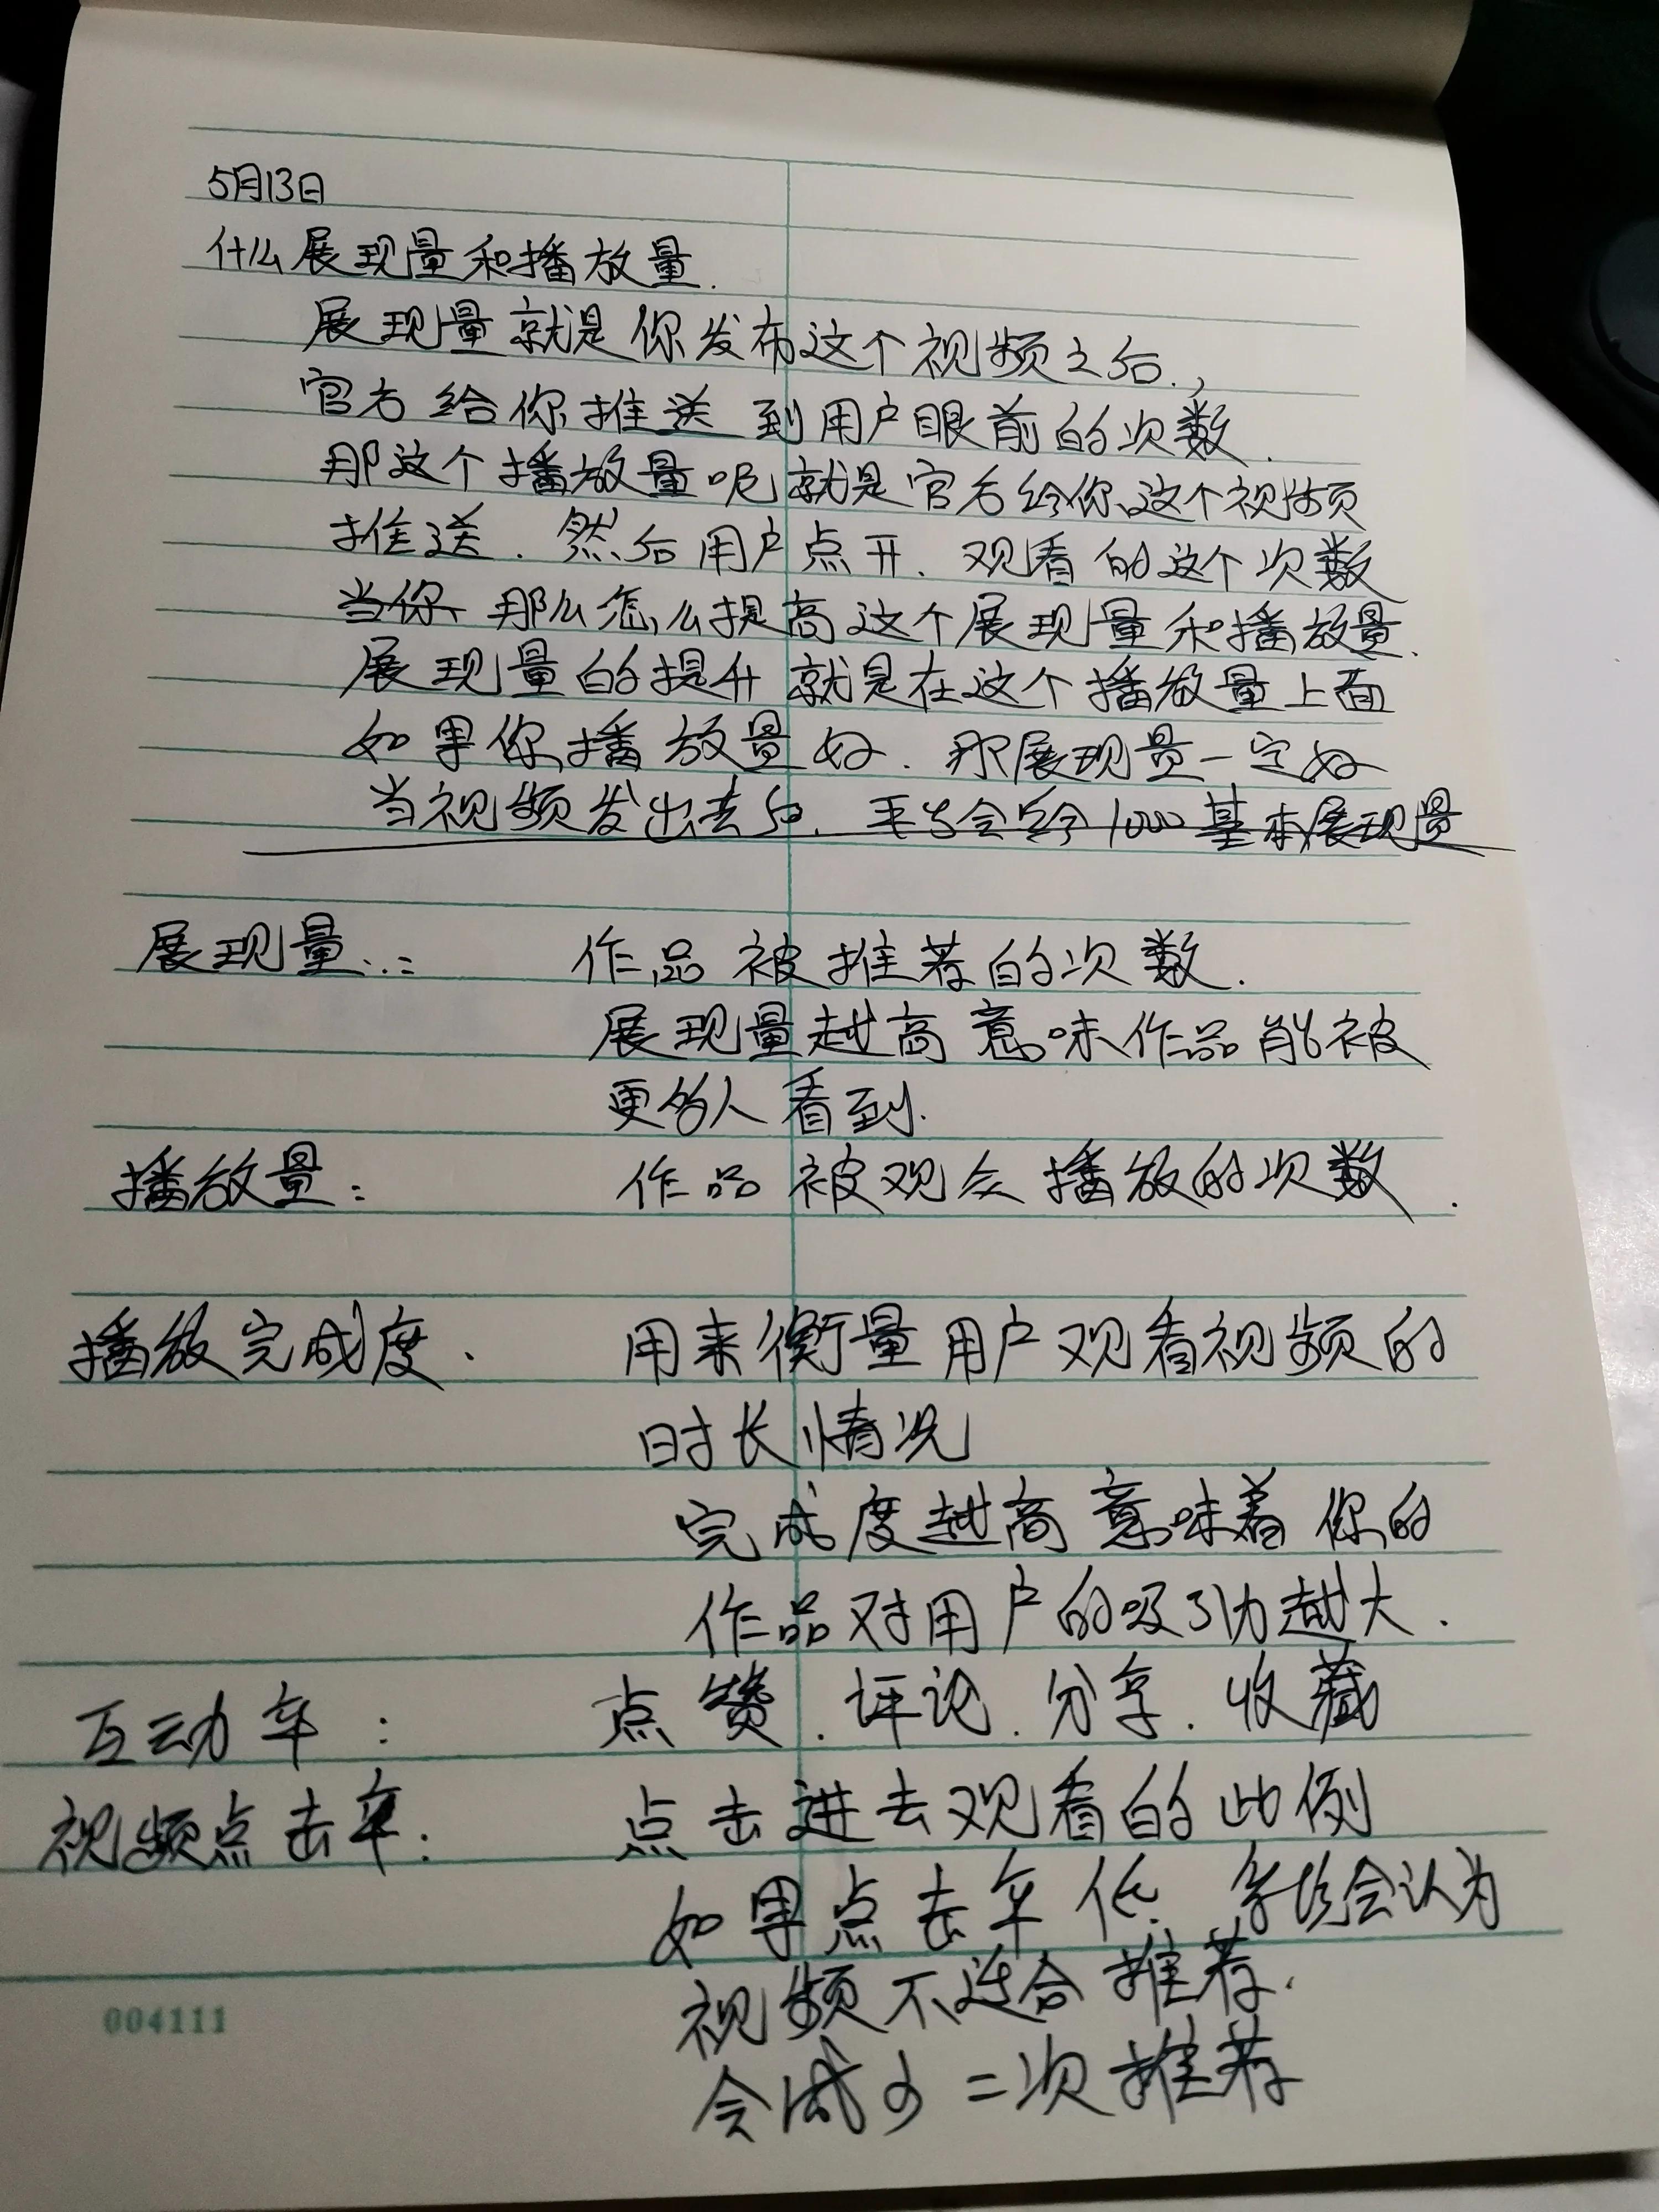 5月13日
什么展现量和播放量.
展现量就是你发布这个视频之后.,
官方给你推送到用户眼前的次数.
那这个播放量呢就是官方给你这个视频
推送.然后用户点开.观看的这个次数
当你 那么怎么提高这个展现量和播放量.
展现量的提升就是在这个播放量上面
如果你播放量好.那展现量一定好
当视频发出去后.平台会给1000基本展现量
展现量..: 作品被推荐的次数.
展现量越高意味作品能被
更多人看到.
播放量: 作品被观众播放的次数.
播放完成度. 用来衡量用户观看视频的
时长情况
完成度越高意味着你的
作品对用户的吸引力越大.
互动率: 点赞.评论.分享.收藏
视频点击率: 点击进去观看的比例
如果点击率低.系统会认为
视频不适合推荐.
会减少二次推荐
004111